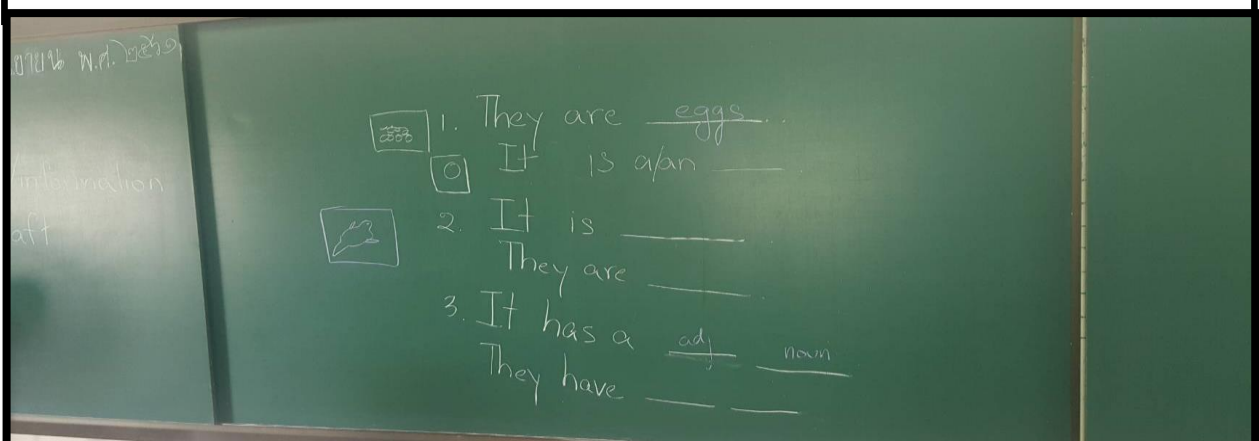 พ.ศ. ๒๕๖๑
information
aft
1. They are eggs
It is a/an ____
2. It is ____
They are ____
3. It has a adj noun
They have ____ ____